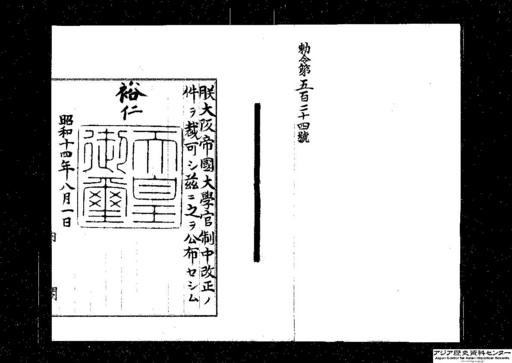 勅令第五百二十四號
朕大阪帝國大學官制中改正ノ
件ヲ裁可シ茲ニ之ヲ公布セシム
裕仁
天皇御璽
昭和十四年八月一日
内閣
アジア歴史資料センター
Japan Center for Asian Historical Records